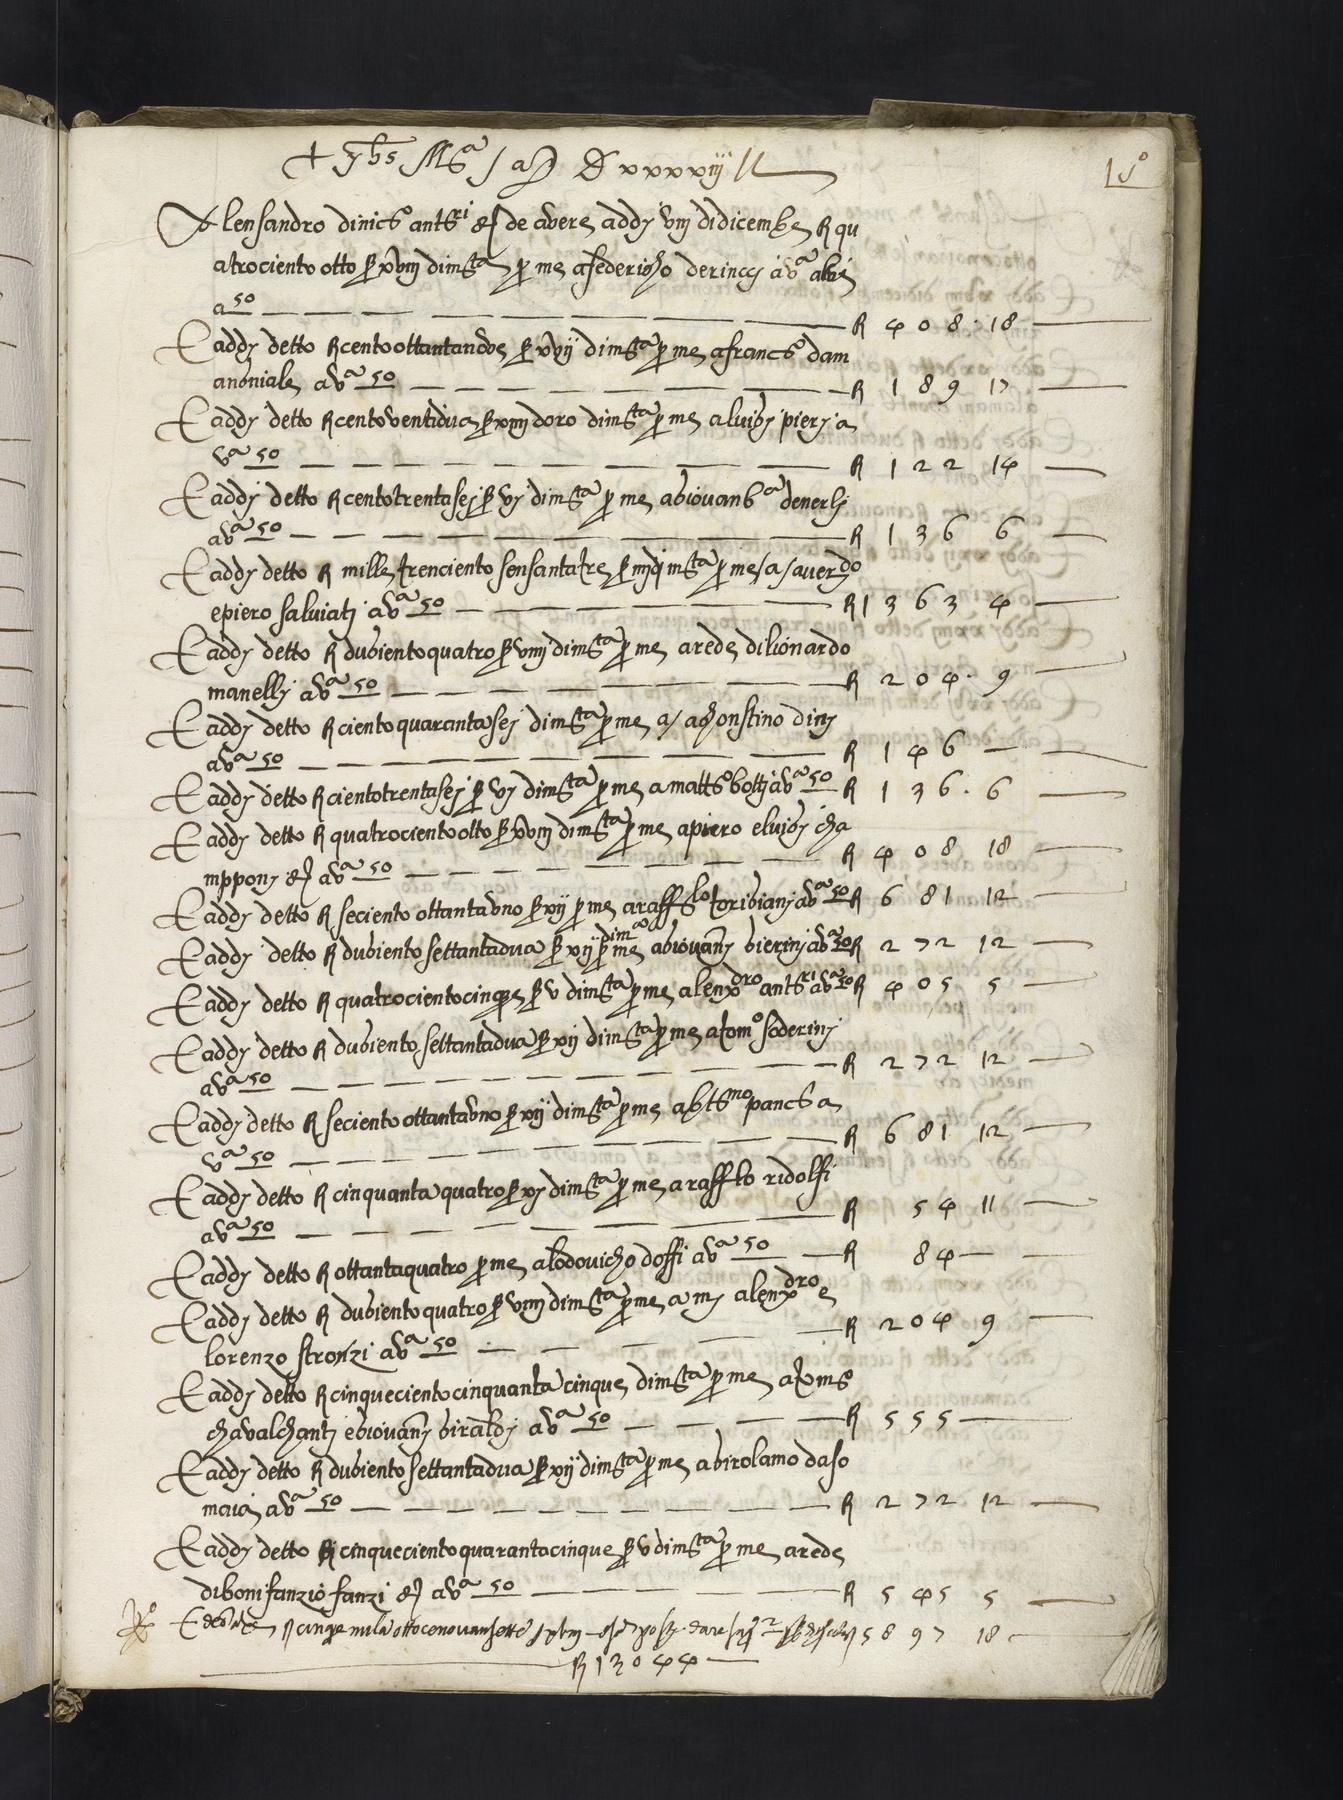 + yhs Mᵃ / a D xxxxiij
1°
Alensandro dinicº antʳⁱ & de avere addj viij didicembe R qu
atrociento otto ß xviij dimᵗᵃ p me afederigho dericcj avᵃ
a 50 R 408 · 18
E addj detto R centottantanove ß xvij dimᵗᵃ p me afrancº dam
anoniale avᵃ 50 R 189 17
E addj detto R centoventidua ß xiiij doro dimᵗᵃ p me aluigj pierj a
vᵃ 50 R 122 14
E addj detto R centotrentasej ß vj dimᵗᵃ p me agiovanbᵃ denerlj
avᵃ 50 R 136 6
E addj detto R mille trenciento sensantatre ß iiij dimᵗᵃ p me / a / averᵈᵒ
epiero salviatj avᵃ 50 R 1363 4
E addj detto R dugientoquatro ß viiij dimᵗᵃ p me arede dilionardo
manellj avᵃ 50 R 204 · 9
E addj detto R cientoquarantasej dimᵗᵃ p me a / aghonstino dinj
avᵃ 50 R 146 —
E addj detto R cientotrentasej ß vj dimᵗᵃ p me amattº bottj avᵃ 50 R 136 · 6
E addj detto R quatrociento otto ß xviij dimᵗᵃ p me apiero eluigj cha
mpponj & avᵃ 50 R 408 18
E addj detto R seciento ottantauno ß xij p me araffˡᵒ toribianj avᵃ 50 R 681 12
E addj detto R dugiento settantadua ß xij dimᵗᵃ p me agiovannj bierinj avᵃ 50 R 272 12
E addj detto R quatrocientocinque ß v dimᵗᵃ p me alenxᵈʳᵒ antʳⁱ avᵃ 50 R 405 5
E addj detto R dugiento settantadua ß xij dimᵗᵃ p me atomº soderinj
avᵃ 50 R 272 12
E addj detto R seciento ottantauno ß xij dimᵗᵃ p me abtᵐᵒ pancᵗ a
vᵃ 50 R 681 12
E addj detto R cinquanta quatro ß xj dimᵗᵃ p me araffˡᵒ ridolfi
avᵃ 50 R 54 11
E addj detto R ottantaquatro p me alodovicho doffi avᵃ 50 R 84 —
E addj detto R dugientoquatro ß viiij dimᵗᵃ p me a mj alenxᵈʳᵒ e
lorenzo stronzi avᵃ 50 R 204 9
E addj detto R cinqueciento cinquanta cinque dimᵗᵃ p me atomº
chavalchantj egiovannj giraldj avᵃ 50 R 555
E addj detto R dugiento settantadua ß xij dimᵗᵃ p me agirolamo daso
maia avᵃ 50 R 272 12
E addj detto R cinquecientoquarantacinque ß v dimᵗᵃ p me arede
dibonifanzio fanzi & avᵃ 50 R 545 5
E R cinque mila ottocenovansette dare R 5897 18
R 13044